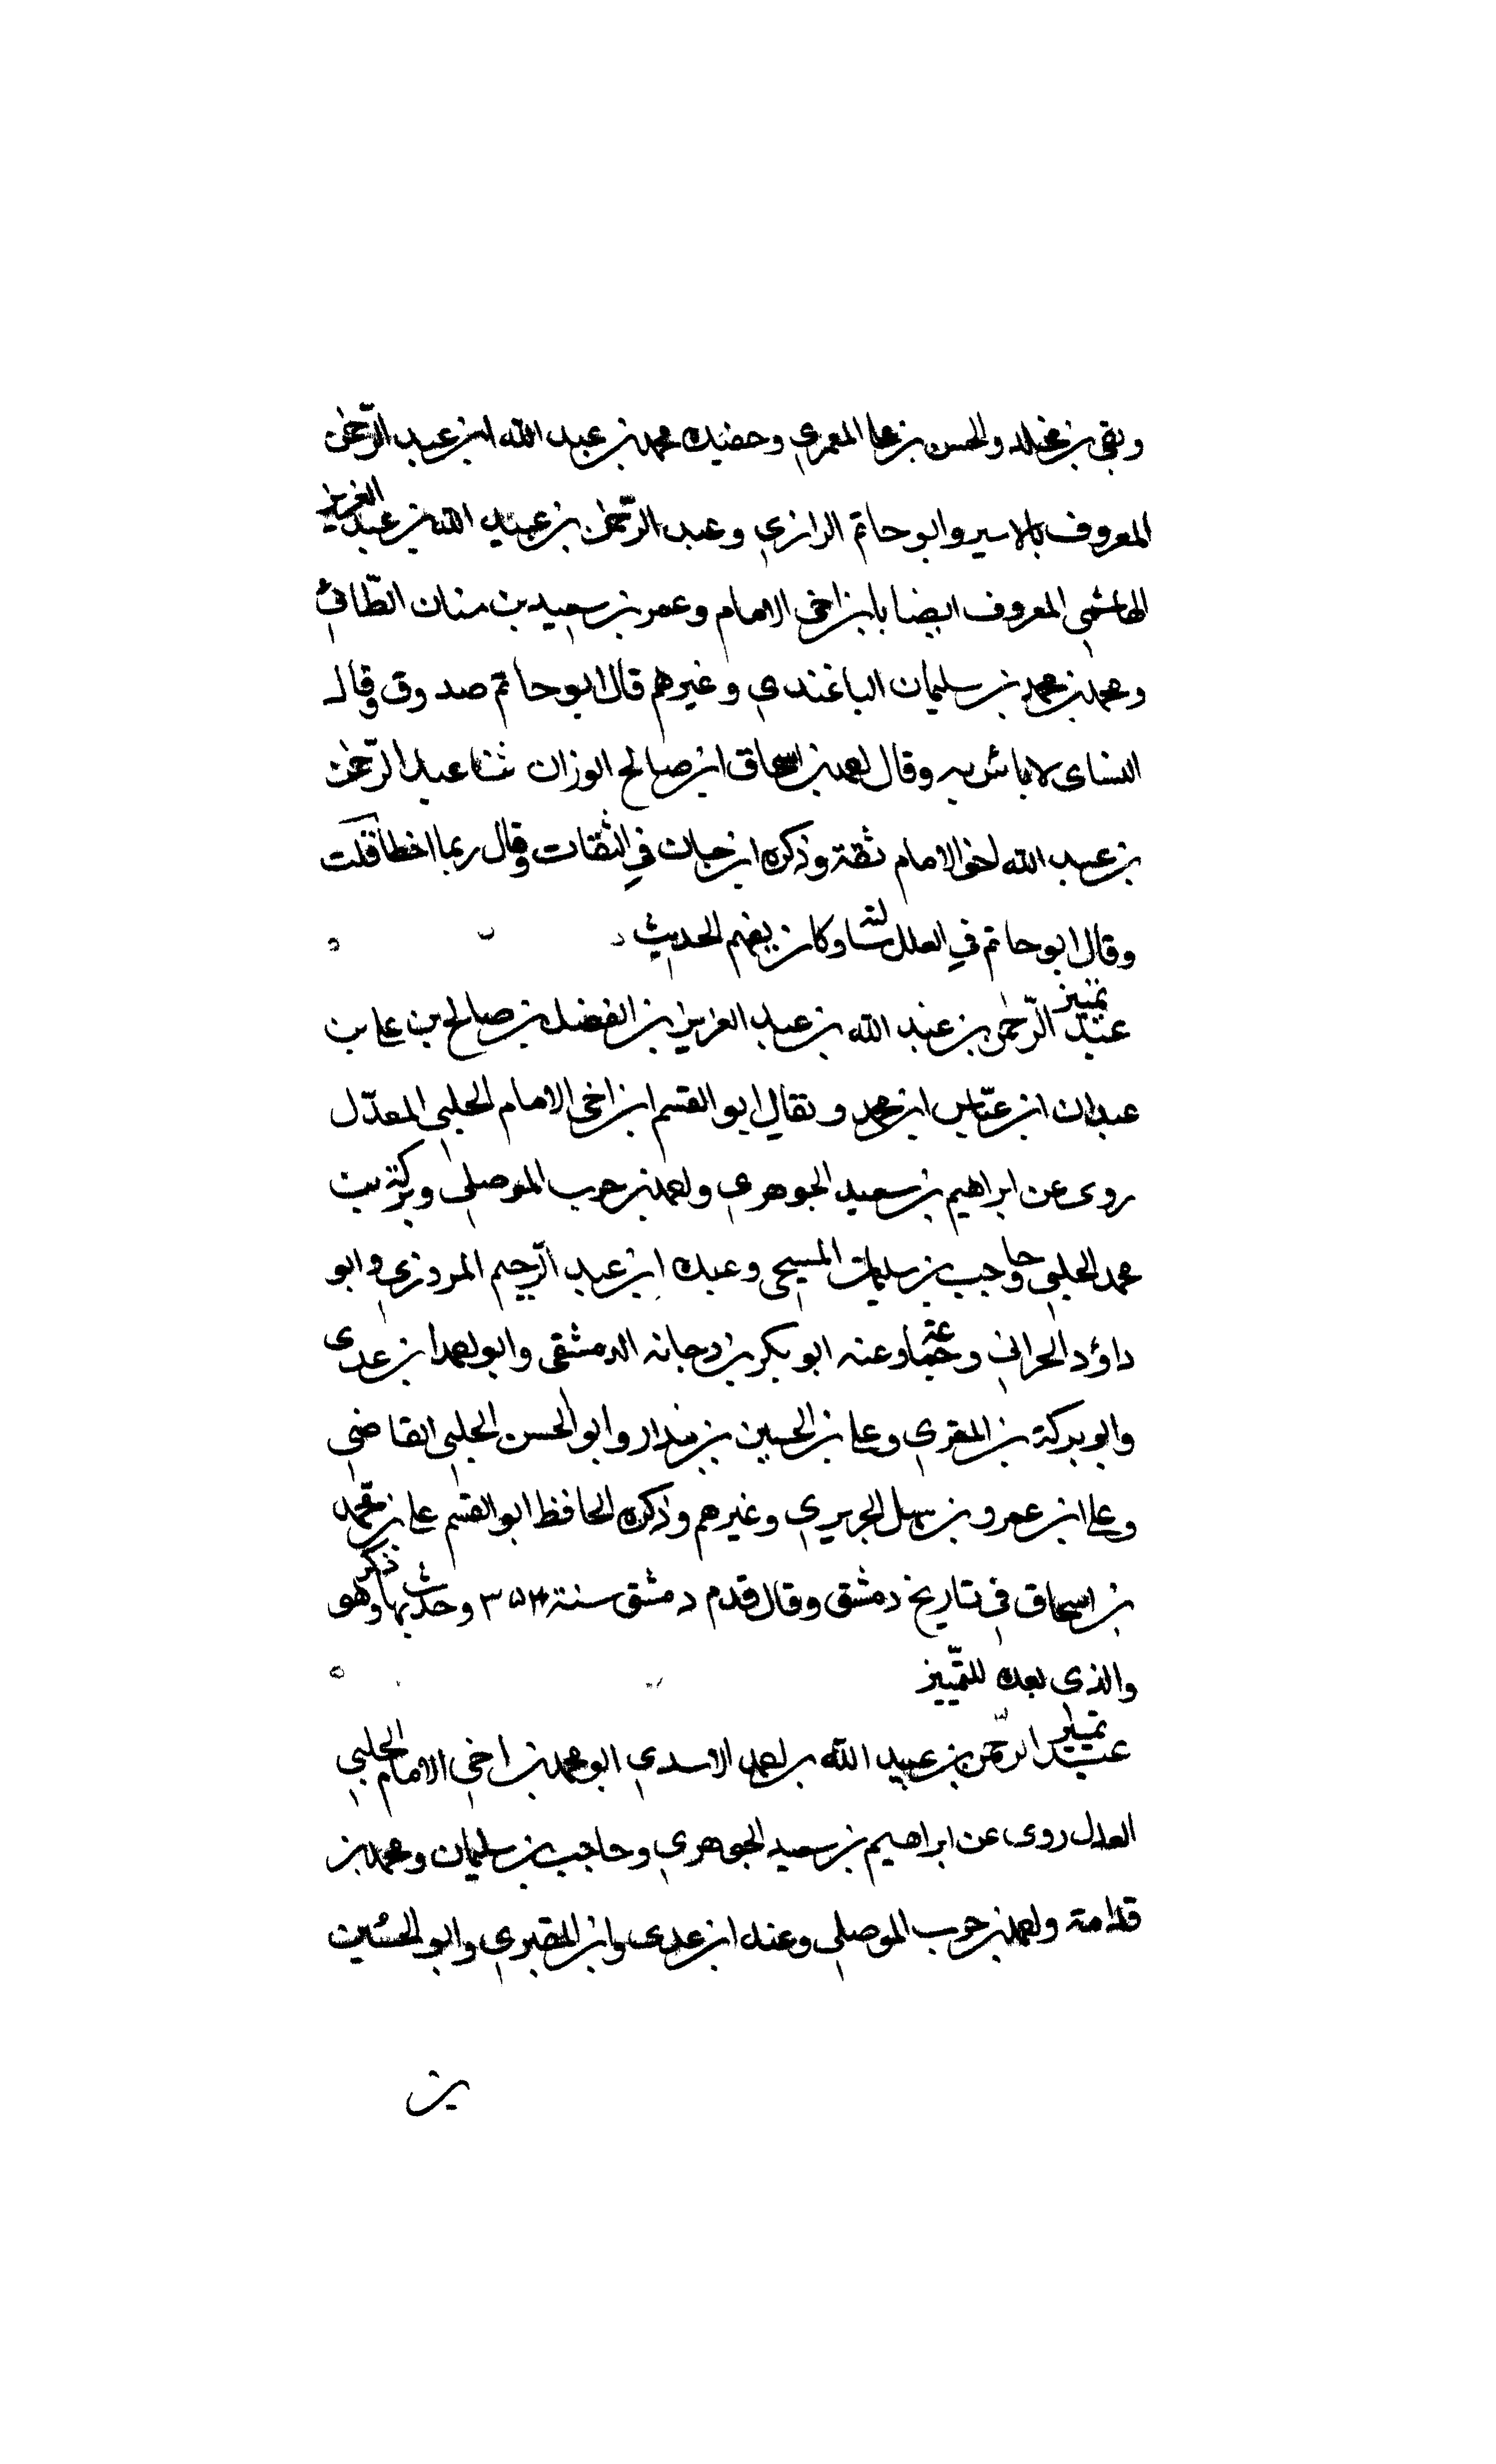 وبقي بن مخلد والحسن بن علي المعمري وحفيده محمد بن عبد الله ابن عبد الرّحمن
المعروف بالاسير وابو حاتم الرازي وعبد الرّحمن بن عبيد الله بن عبد العزيز
الهاشمي المعروف ايضا بابن اخي الامام وعمر بن سعيد بن سنان الطّائي
ومحمد بن محمد بن سليمان الباغندي وغيرهم قال ابو حاتم صدوق وقال
النساى لا باس به وقال احمد بن اسحاق ابن صالح الوزان ثنا عبد الرّحمن
بن عبيد الله اخي الامام ثقة وذكره ابن حبان في الثقات وقال ربما اخطا قلت
وقال ابو حاتم في العلل وكان يفهم الحديث
تمييز
عبد الرّحمن بن عبد الله بن عبد العزيز بن الفضل بن صالح بن علي بن
عبدان ابن عبّاس ابو محمد ويقال ابو القسم ابن اخي الامام الحلبي المعدّل
روى عن ابراهيم بن سعيد الجوهري واحمد بن حرب الموصلي وبركة بن
محمد الحلبي وحاجب بن سليمان المنبجي وعبده ابن عبد الرّحيم المروزي وابو
داؤد الحراني وجماعة وعنه ابو بكر بن دجانه الدمشقي وابو احمد ابن عدى
وابو بركة بن المقري وعلي بن الحسين بن بندار وابو الحسن الحلبي القاضي
وعلي ابن عمرو بن سهل الجريري وغيرهم وذكره الحافظ ابو القسم علي بن محمد
بن اسحاق في تاريخ دمشق وقال قدم دمشق سنة ٣٥٣ وحدث بها ذكر وهو
والذى بعده للتّمييز
تمييز
عبد الرحمن بن عبيد الله بن احمد الاسدي ابو محمد بن اخي الامام الحلبي
العدل روى عن ابراهيم بن سعيد الجوهري وحاجب بن سليمان ومحمد بن
قدامة واحمد بن حرب الموصلي وعنه ابن عدى وابن المقبري وابو الحسُين
بن